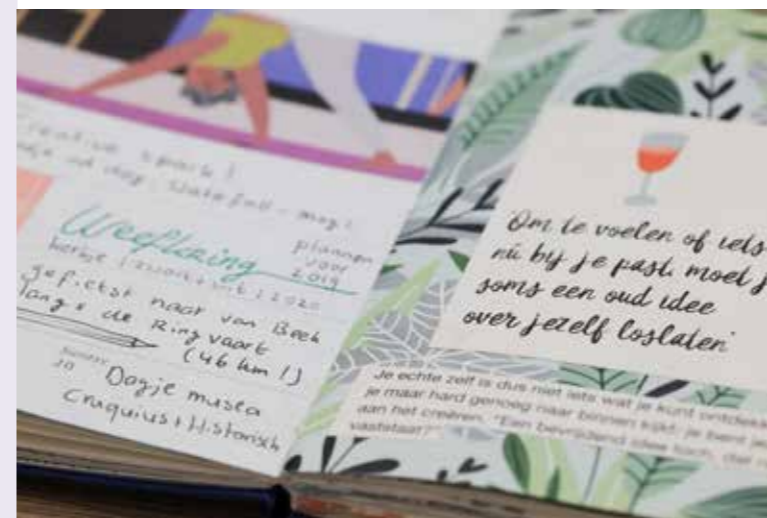 creative spark!
Weefkring
plannen
voor
2019
gefietst naar van Beek
langs de Ringvaart
(46 km!)
SUNDAY
20 Dagje musea
Cruquius + Historisch
'Om te voelen of iets
nú bij je past, moet j
soms een oud idee
over jezelf loslaten'
Je echte zelf is dus niet iets wat je kunt ontdekk
je maar hard genoeg naar binnen kijkt: je bent je
aan het creëren. "Een bevrijdend idee toch, dat
vaststaat?"